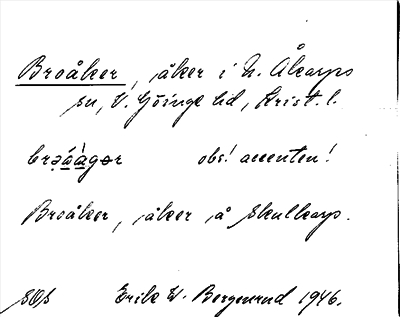 Broåker, åker i N. Åkarps
sn, V. Göinge hd, Krist. l.
obs! accenten!
Broåker, åker å Skulkarp.
Erik W. Bergmrud 1946.